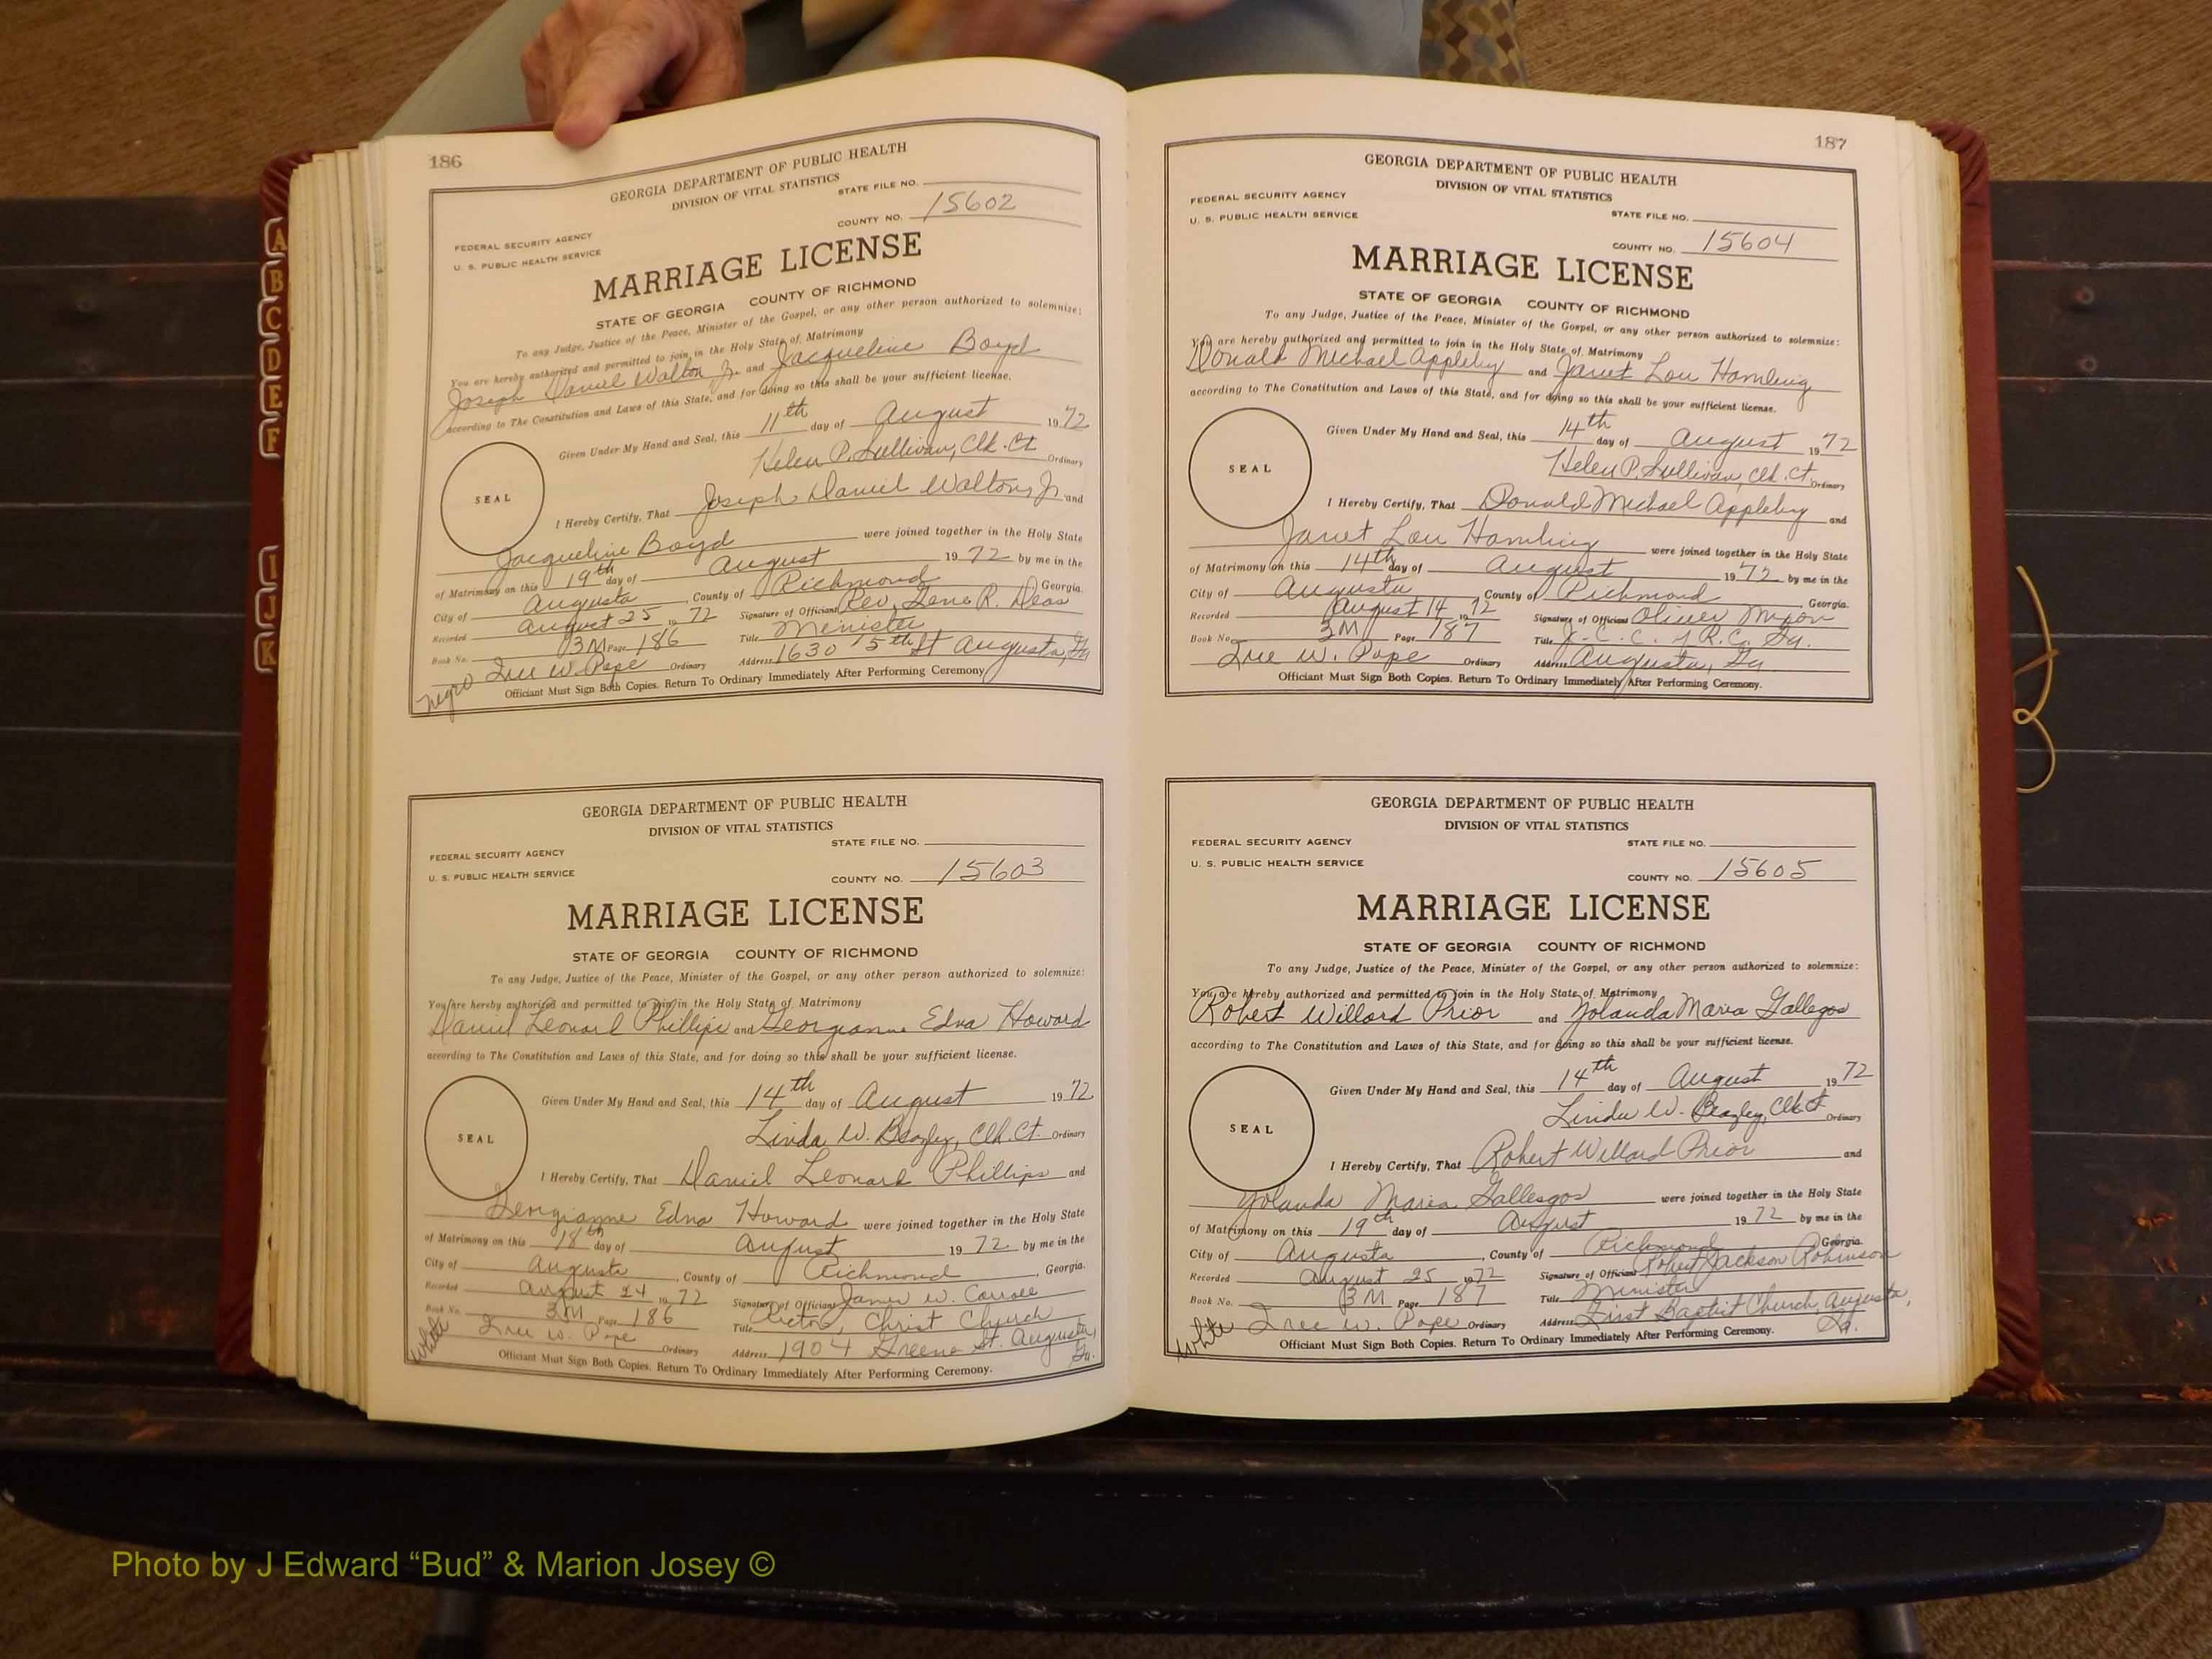 186
GEORGIA DEPARTMENT OF PUBLIC HEALTH
DIVISION OF VITAL STATISTICS
STATE FILE NO.
COUNTY NO. 15602
FEDERAL SECURITY AGENCY
U. S. PUBLIC HEALTH SERVICE
MARRIAGE LICENSE
STATE OF GEORGIA COUNTY OF RICHMOND
To any Judge, Justice of the Peace, Minister of the Gospel, or any other person authorized to solemnize:
You are hereby authorized and permitted to join in the Holy State of Matrimony
Joseph Daniel Walton Jr. and Jacqueline Boyd
according to The Constitution and Laws of this State, and for doing so this shall be your sufficient license.
Given Under My Hand and Seal, this 11th day of August 1972
Helen P. Sullivan, Clk. Ct. Ordinary
SEAL
I Hereby Certify, That Joseph Daniel Walton, Jr and
Jacqueline Boyd were joined together in the Holy State
of Matrimony on this 19th day of August 1972 by me in the
City of Augusta, County of Richmond Georgia.
Recorded August 25 1972 Signature of Officiant Rev. R. Deas
Book No. 3M Page 186 Title Minister
Inee W. Pope Ordinary Address 1630 15th St Augusta, Ga
Negro
Officiant Must Sign Both Copies. Return To Ordinary Immediately After Performing Ceremony
GEORGIA DEPARTMENT OF PUBLIC HEALTH
DIVISION OF VITAL STATISTICS
STATE FILE NO.
FEDERAL SECURITY AGENCY
U. S. PUBLIC HEALTH SERVICE
COUNTY NO. 15603
MARRIAGE LICENSE
STATE OF GEORGIA COUNTY OF RICHMOND
To any Judge, Justice of the Peace, Minister of the Gospel, or any other person authorized to solemnize:
You are hereby authorized and permitted to join in the Holy State of Matrimony
Daniel Leonard Phillips and Georgianne Edna Howard
according to The Constitution and Laws of this State, and for doing so this shall be your sufficient license.
Given Under My Hand and Seal, this 14th day of August 1972
Linda W. Beazley, Clk. Ct. Ordinary
SEAL
I Hereby Certify, That Daniel Leonard Phillips and
Georgianne Edna Howard were joined together in the Holy State
of Matrimony on this 18th day of August 1972 by me in the
City of Augusta, County of Richmond, Georgia.
Recorded August 24 1972 Signature of Officiant James W. Carroll
Book No. 3M Page 186 Title Rector, Christ Church
Inee W. Pope Ordinary Address 1904 Greene St. Augusta, Ga.
White
Officiant Must Sign Both Copies. Return To Ordinary Immediately After Performing Ceremony.
187
GEORGIA DEPARTMENT OF PUBLIC HEALTH
DIVISION OF VITAL STATISTICS
FEDERAL SECURITY AGENCY
U. S. PUBLIC HEALTH SERVICE
STATE FILE NO.
COUNTY NO. 15604
MARRIAGE LICENSE
STATE OF GEORGIA COUNTY OF RICHMOND
To any Judge, Justice of the Peace, Minister of the Gospel, or any other person authorized to solemnize:
You are hereby authorized and permitted to join in the Holy State of Matrimony
Donald Michael Appleby and Janet Lou
according to The Constitution and Laws of this State, and for doing so this shall be your sufficient license.
Given Under My Hand and Seal, this 14th day of August 1972
Helen P. Sullivan, Clk. Ct. Ordinary
SEAL
I Hereby Certify, That Donald Michael Appleby and
Janet Lou were joined together in the Holy State
of Matrimony on this 14th day of August 1972 by me in the
City of Augusta, County of Richmond Georgia.
Recorded August 14 1972 Signature of Officiant Oliver Mixon
Book No. 3M Page 187 Title J.C.C. of R.C. Ga.
Inee W. Pope Ordinary Address Augusta, Ga
Officiant Must Sign Both Copies. Return To Ordinary Immediately After Performing Ceremony.
GEORGIA DEPARTMENT OF PUBLIC HEALTH
DIVISION OF VITAL STATISTICS
FEDERAL SECURITY AGENCY
STATE FILE NO.
U. S. PUBLIC HEALTH SERVICE
COUNTY NO. 15605
MARRIAGE LICENSE
STATE OF GEORGIA COUNTY OF RICHMOND
To any Judge, Justice of the Peace, Minister of the Gospel, or any other person authorized to solemnize:
You are hereby authorized and permitted to join in the Holy State of Matrimony
Robert Willard Prior and Yolanda Maria Gallegos
according to The Constitution and Laws of this State, and for doing so this shall be your sufficient license.
Given Under My Hand and Seal, this 14th day of August 1972
Linda W. Beazley, Clk Ct Ordinary
SEAL
I Hereby Certify, That Robert Willard Prior and
Yolanda Maria Gallegos were joined together in the Holy State
of Matrimony on this 19th day of August 1972 by me in the
City of Augusta, County of Richmond Georgia.
Recorded August 25 1972 Signature of Officiant Robert Jackson Robinson
Book No. 3M Page 187 Title Minister
Inee W. Pope Ordinary Address First Baptist Church, Augusta, Ga.
White
Officiant Must Sign Both Copies. Return To Ordinary Immediately After Performing Ceremony.
A
B
C
D
E
F
I
J
K
Photo by J Edward “Bud” & Marion Josey ©